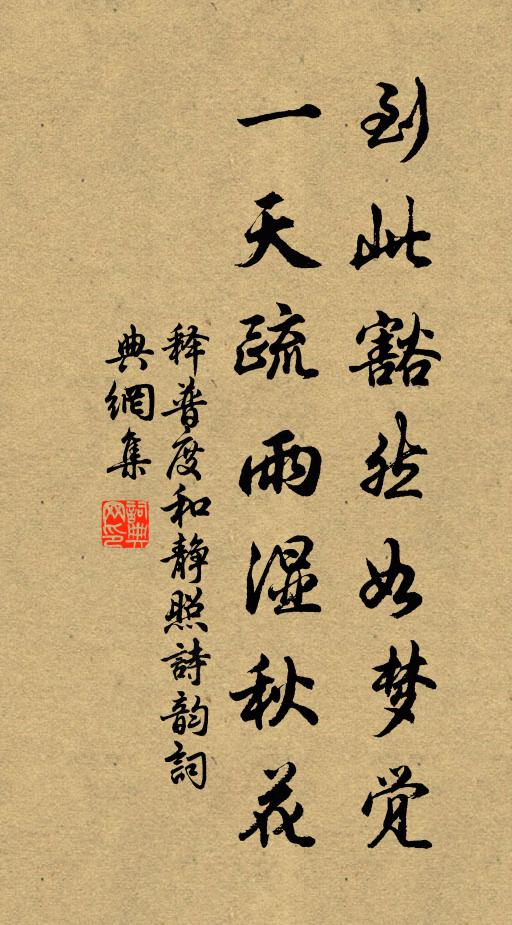 到此豁然如梦觉
一天疏雨湿秋花
释普度和静照詩韵詞
典網集
詞典网印